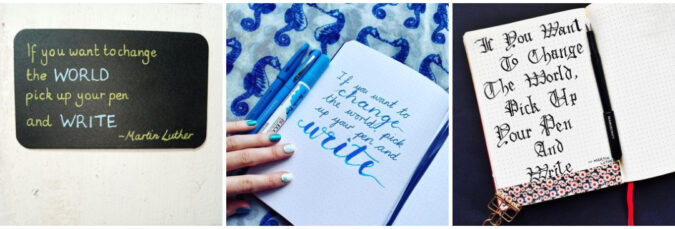 If you want to change
the WORLD
pick up your pen
and WRITE
~Martin Luther
If you want to
change
the world, pick
up your pen and
write
If You Want
To Change
The World,
Pick Up
Your Pen
And
Write